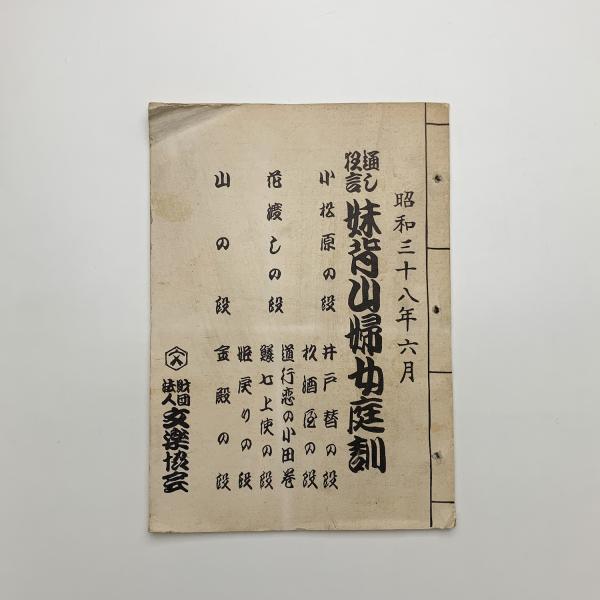 昭和三十八年六月
通し
狂言
妹背山婦女庭訓
小松原の段
花渡しの段
山の段
井戸替の段
杉酒屋の段
道行恋の小田巻
鱶七上使の段
姫戻りの段
金殿の段
財団
法人
文楽協会